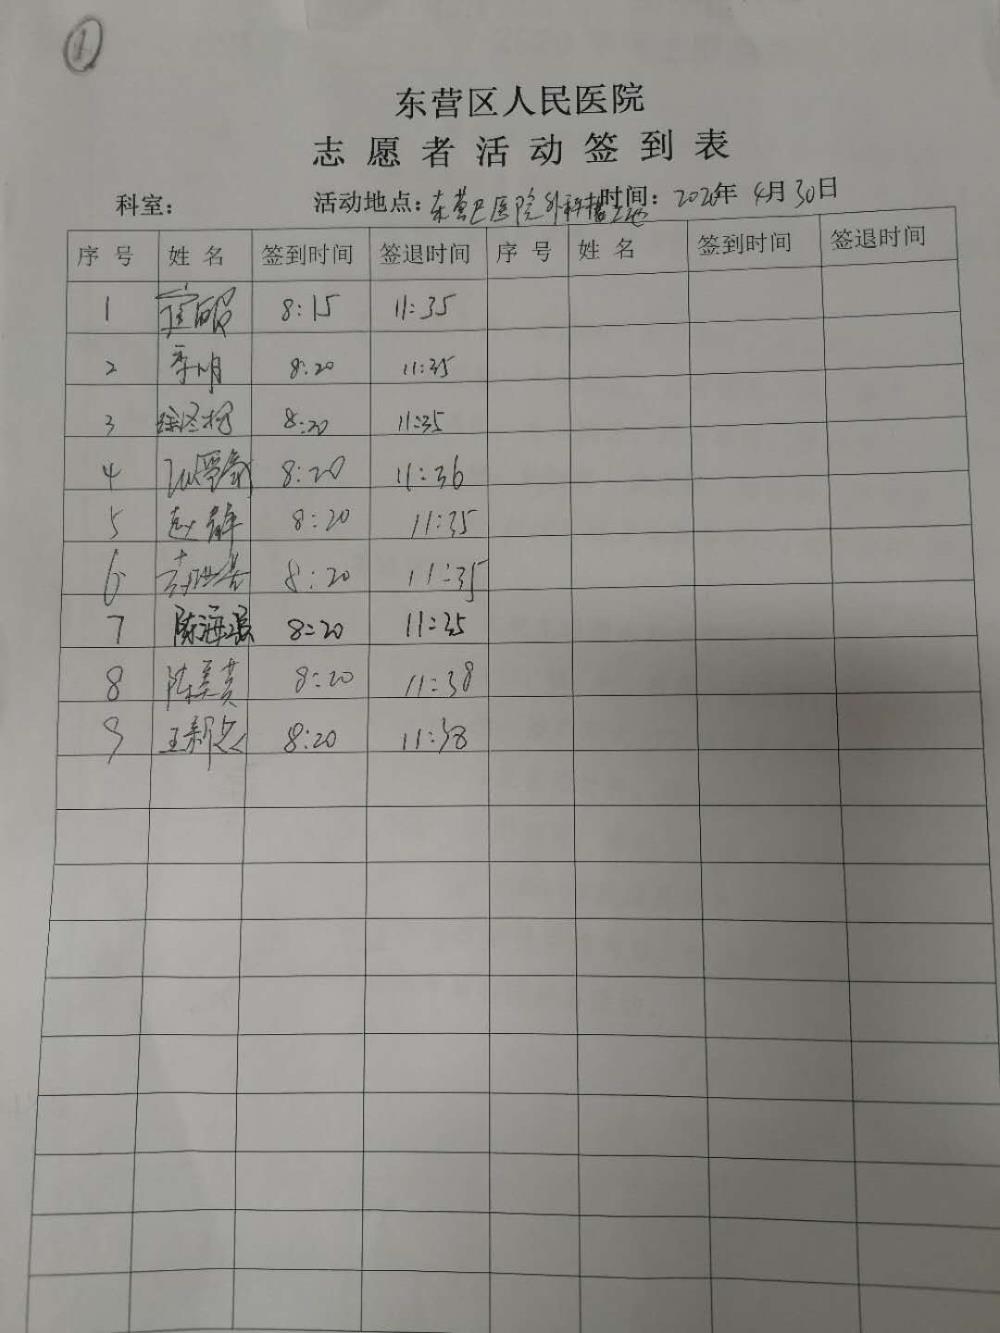 1
东营区人民医院
志愿者活动签到表
科室： 活动地点：东营区医院外科楼工地 时间：2020年4月30日
序号 姓名 签到时间 签退时间 序号 姓名 签到时间 签退时间
1 8:15 11:35
2 李明 8:20 11:35
3 8:20 11:35
4 8:20 11:36
5 赵静 8:20 11:35
6 8:20 11:35
7 陈海强 8:20 11:35
8 陈美英 8:20 11:38
9 王新 8:20 11:38